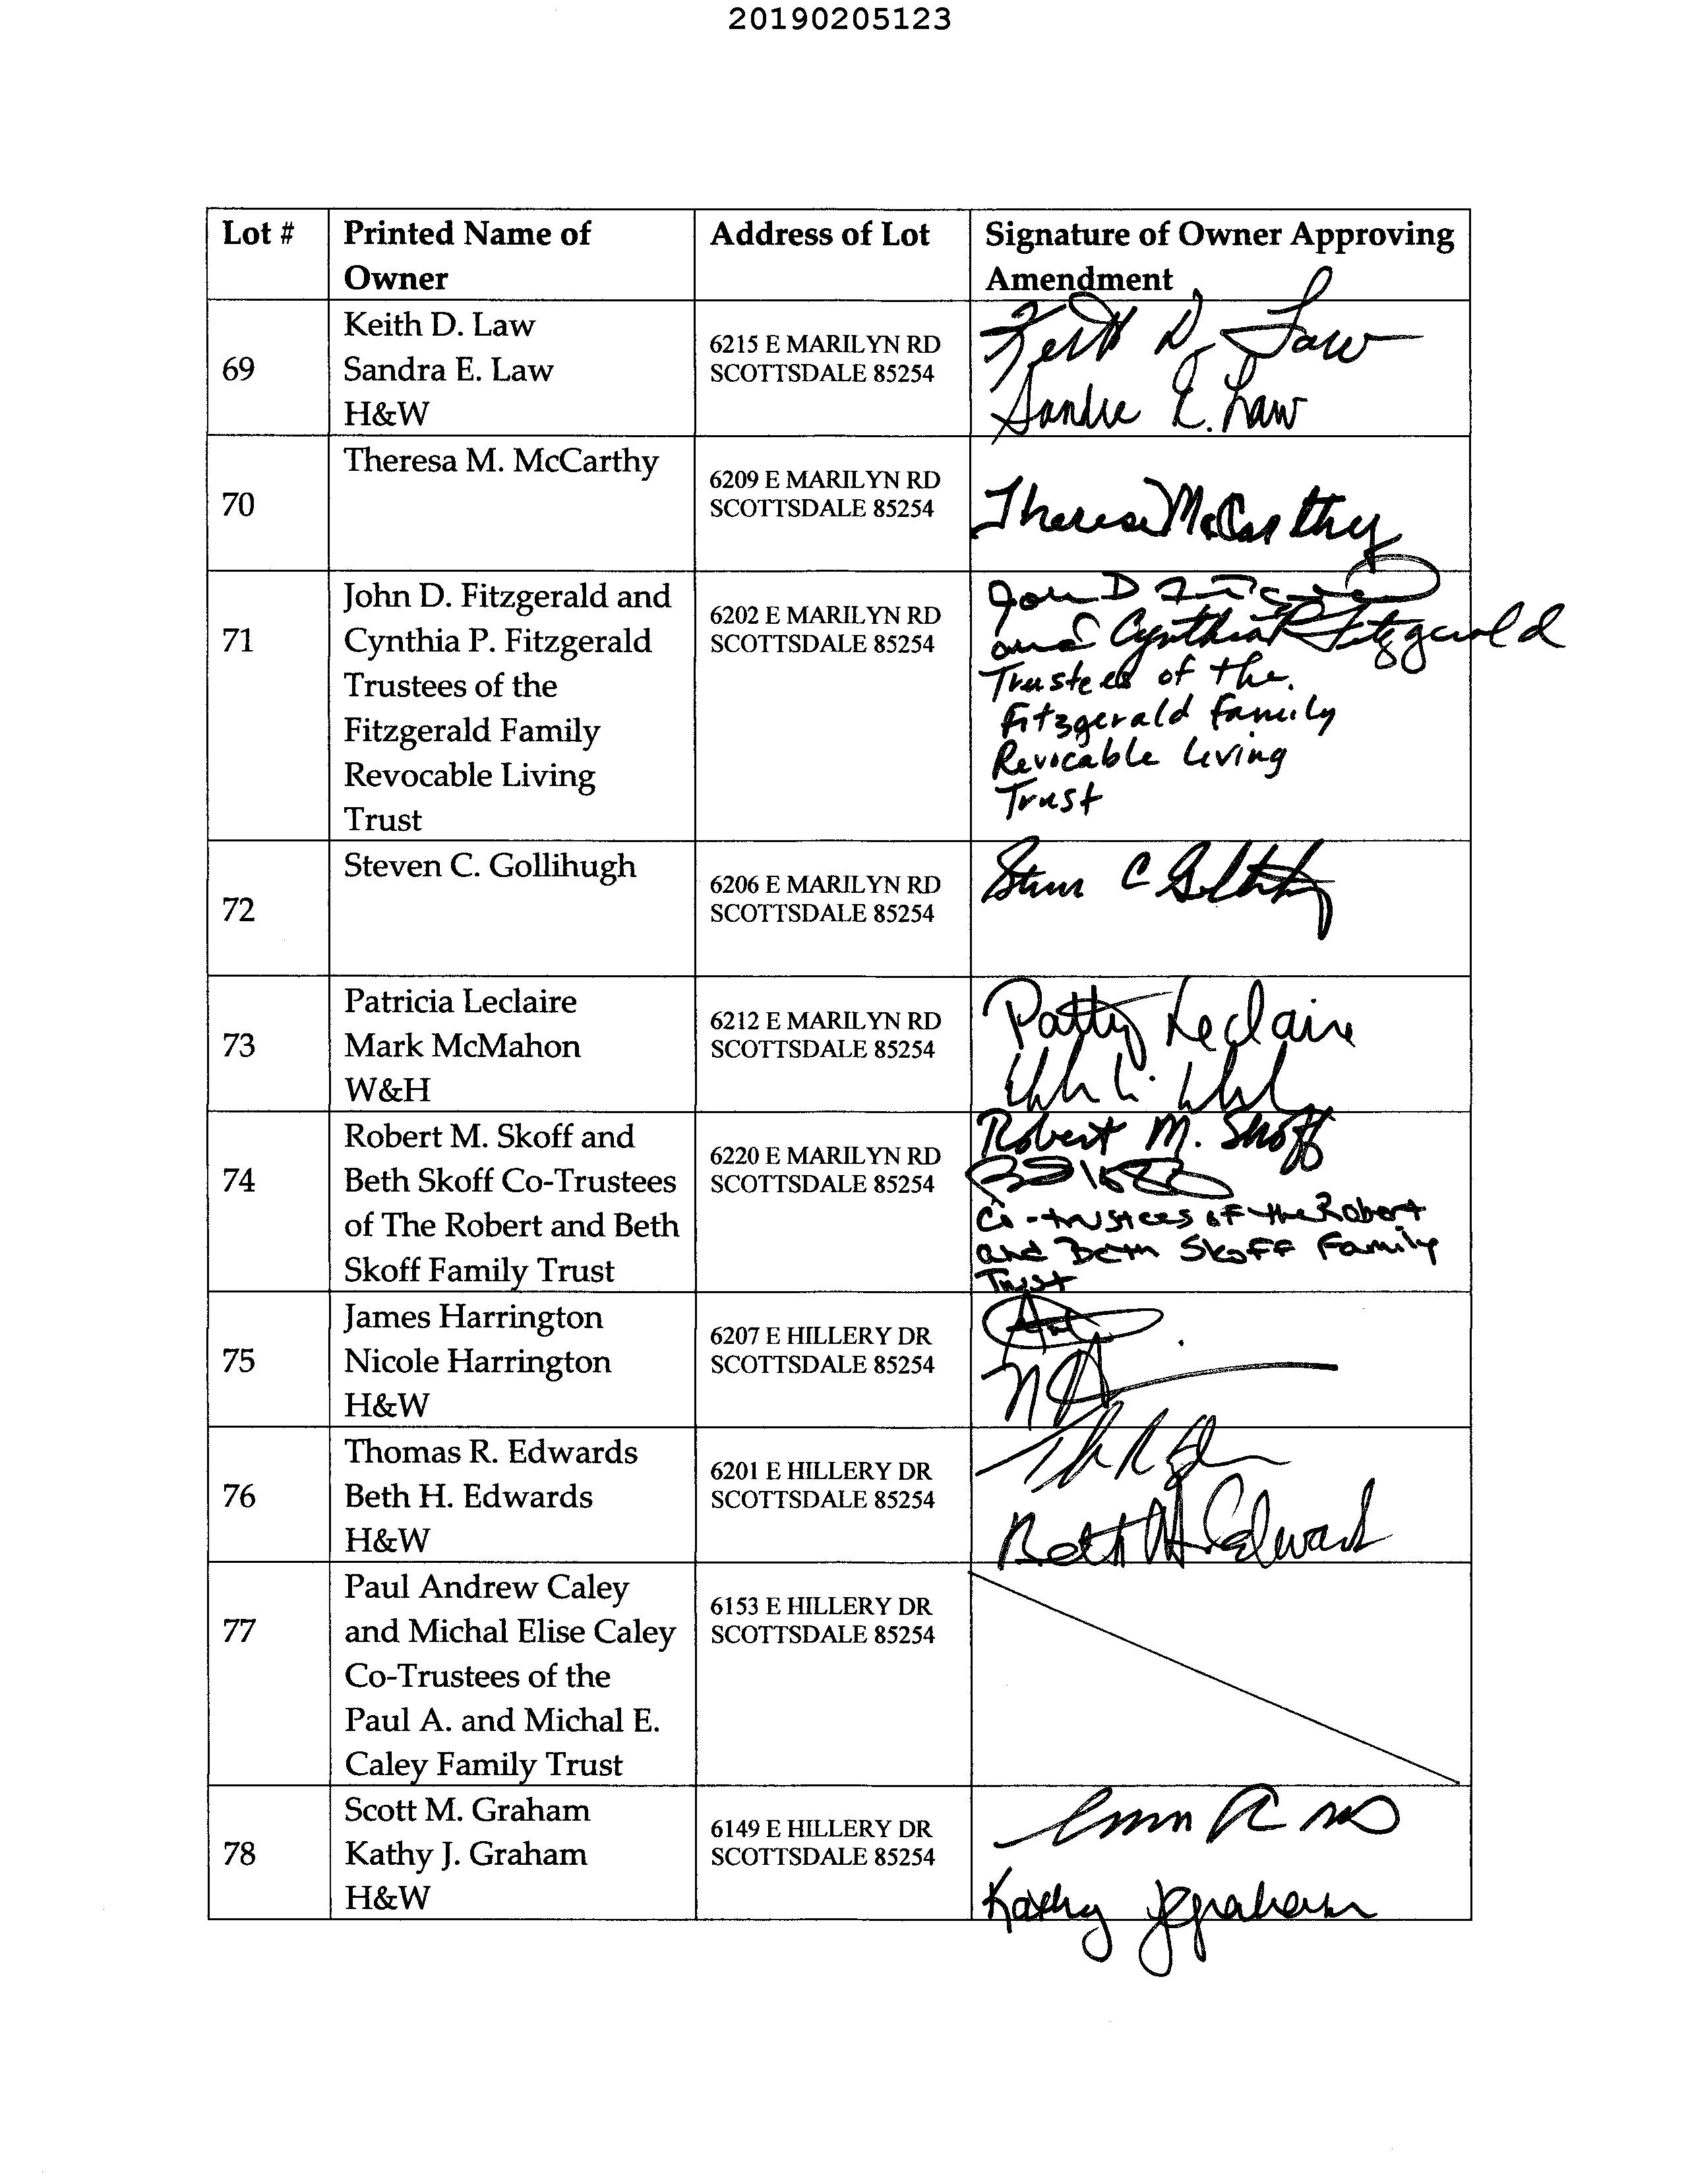 20190205123
Lot # Printed Name of Address of Lot Signature of Owner Approving
Owner Amendment
Keith D. Law
69 Sandra E. Law
H&W
6215 E MARILYN RD
SCOTTSDALE 85254
Keith D. Law
Sandra E. Law
Theresa M. McCarthy
70
6209 E MARILYN RD
SCOTTSDALE 85254
Theresa McCarthy
John D. Fitzgerald and
71 Cynthia P. Fitzgerald
Trustees of the
Fitzgerald Family
Revocable Living
Trust
6202 E MARILYN RD
SCOTTSDALE 85254
John D
and Cynthia P Fitzgerald
Trustees of the
Fitzgerald Family
Revocable Living
Trust
Steven C. Gollihugh
72
6206 E MARILYN RD
SCOTTSDALE 85254
Steven C
Patricia Leclaire
73 Mark McMahon
W&H
6212 E MARILYN RD
SCOTTSDALE 85254
Patty Leclaire
Robert M. Skoff and
74 Beth Skoff Co-Trustees
of The Robert and Beth
Skoff Family Trust
6220 E MARILYN RD
SCOTTSDALE 85254
Robert M. Skoff
Co-trustees of the Robert
and Beth Skoff Family
Trust
James Harrington
75 Nicole Harrington
H&W
6207 E HILLERY DR
SCOTTSDALE 85254
Thomas R. Edwards
76 Beth H. Edwards
H&W
6201 E HILLERY DR
SCOTTSDALE 85254
Beth H Edwards
Paul Andrew Caley
77 and Michal Elise Caley
Co-Trustees of the
Paul A. and Michal E.
Caley Family Trust
6153 E HILLERY DR
SCOTTSDALE 85254
Scott M. Graham
78 Kathy J. Graham
H&W
6149 E HILLERY DR
SCOTTSDALE 85254
Kathy J Graham